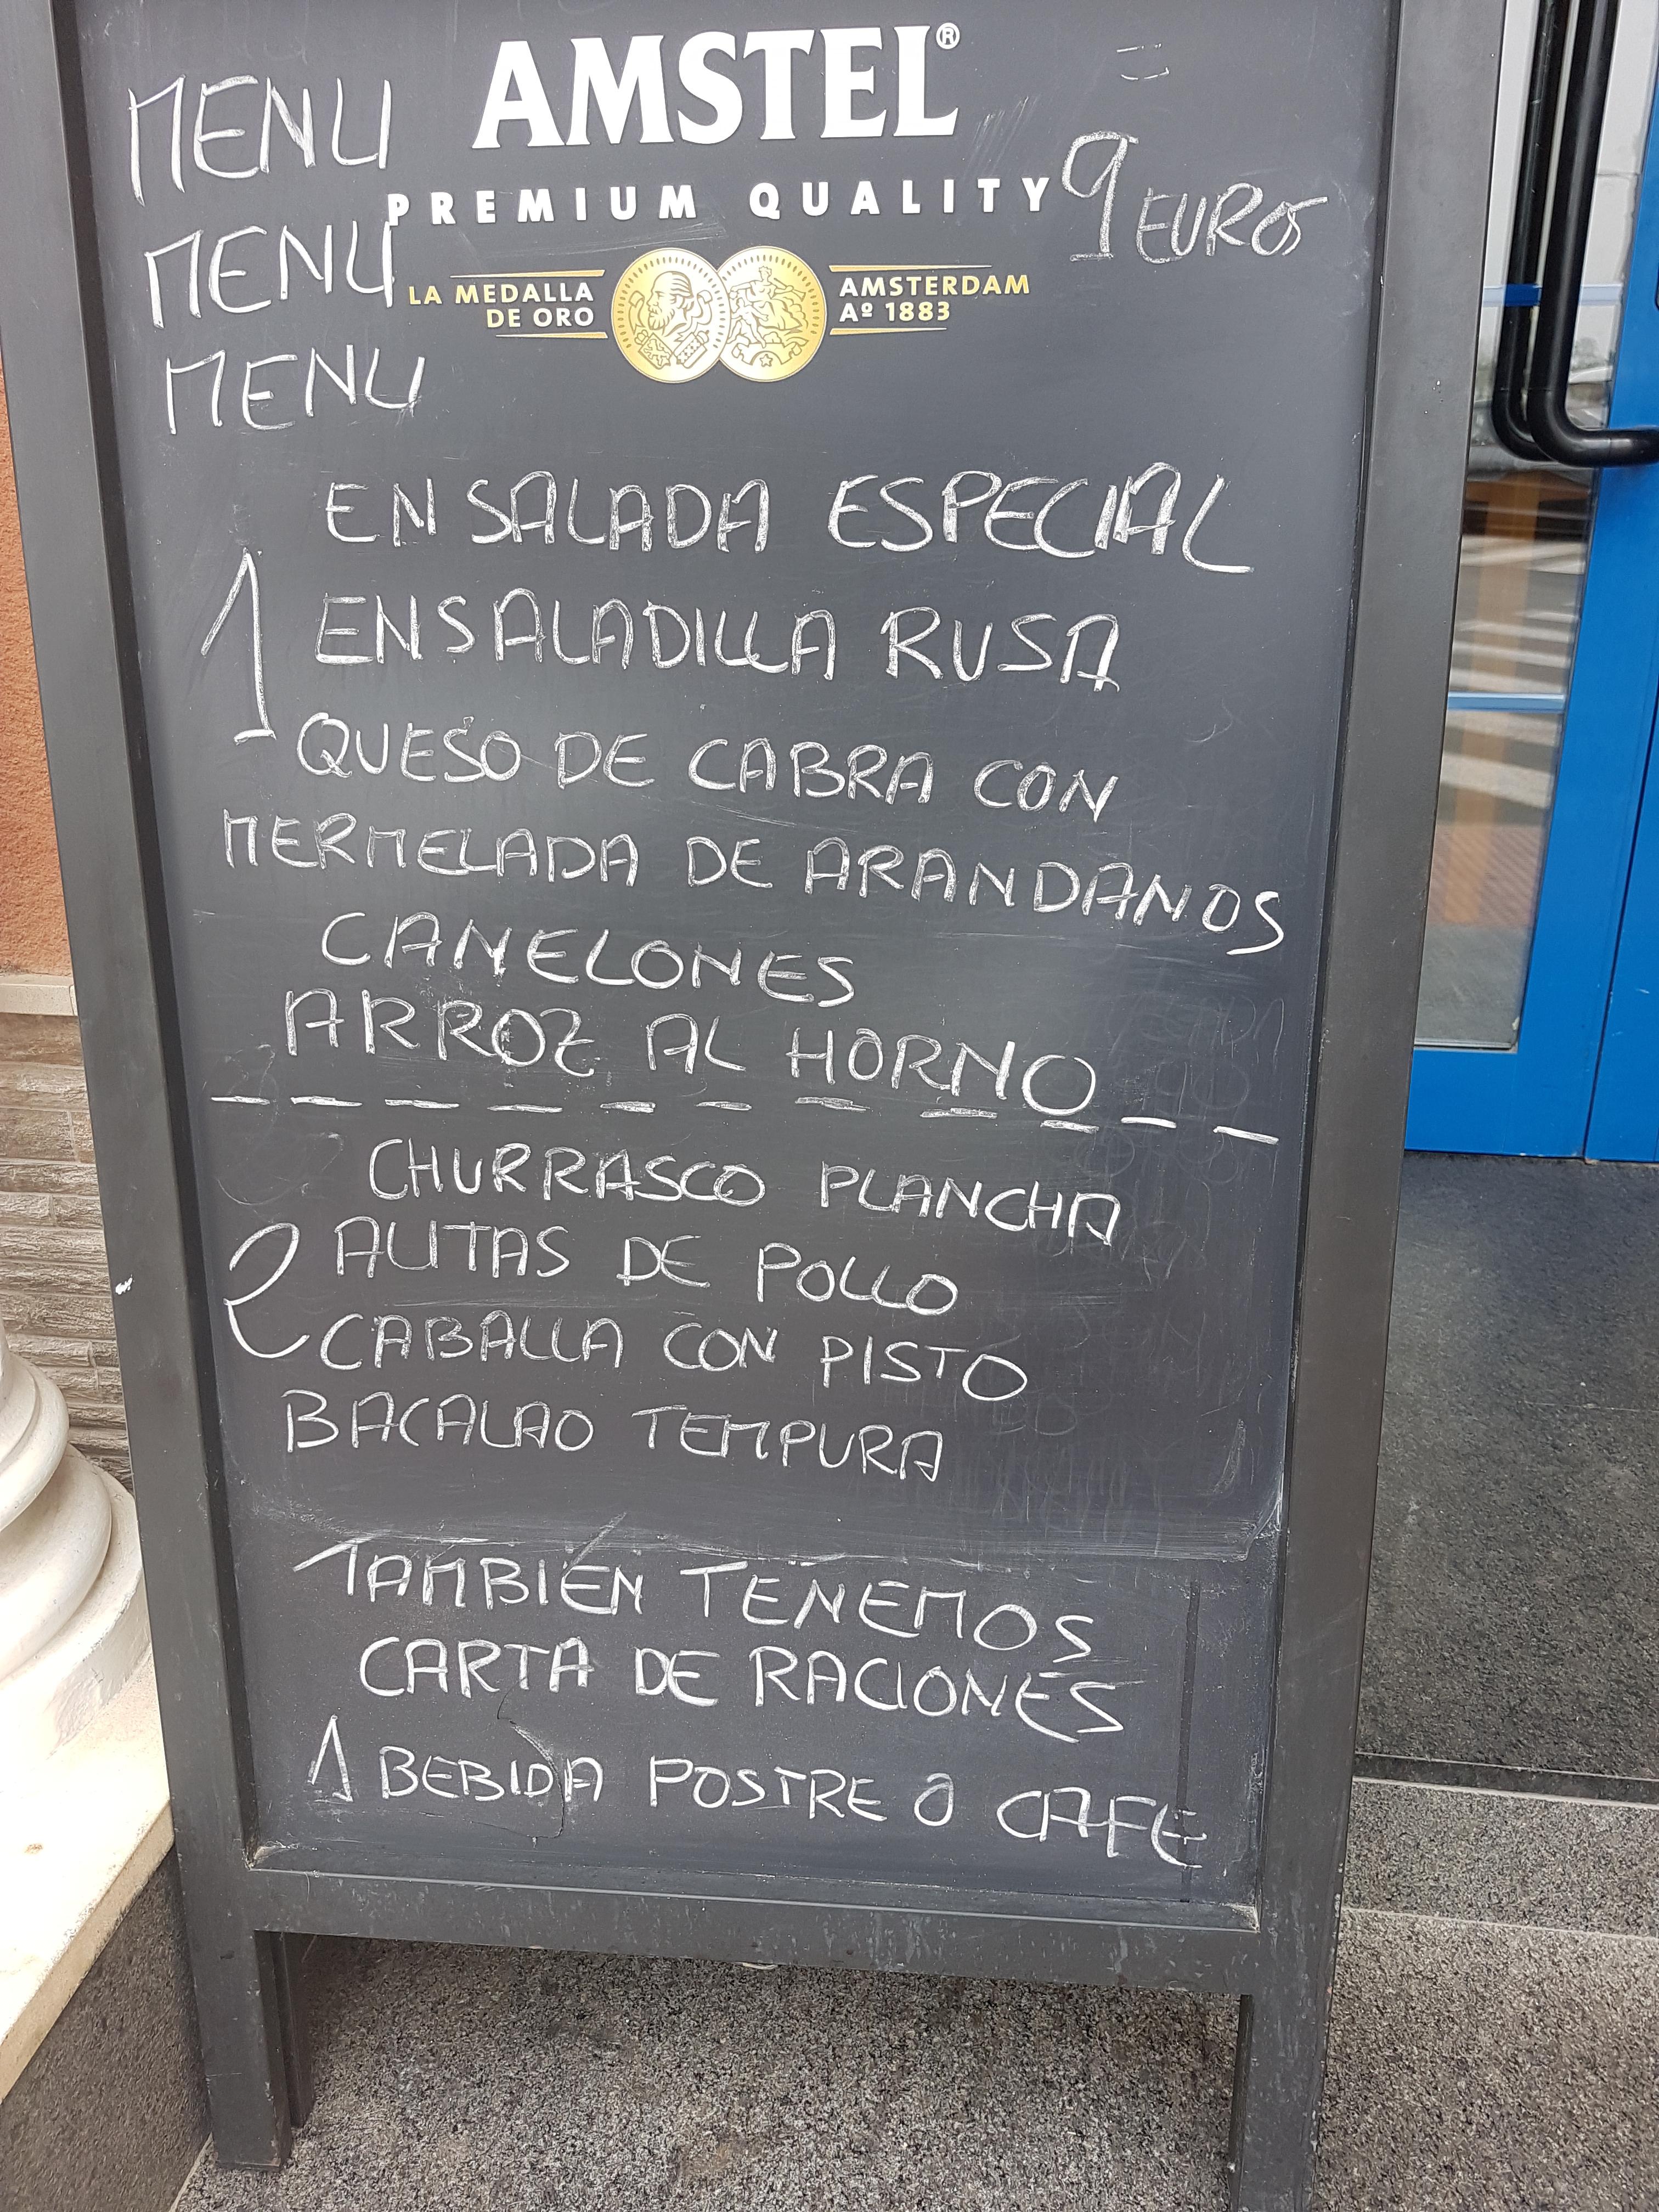 AMSTEL®
MENU
PREMIUM QUALITY
9 EUROS
MENU
LA MEDALLA DE ORO
AMSTERDAM Aº 1883
MENU
ENSALADA ESPECIAL
1 ENSALADILLA RUSA
QUESO DE CABRA CON
MERMELADA DE ARANDANOS
CANELONES
ARROZ AL HORNO
CHURRASCO PLANCHA
2 ALITAS DE POLLO
CABALLA CON PISTO
BACALAO TEMPURA
TAMBIÉN TENEMOS
CARTA DE RACIONES
1 BEBIDA POSTRE O CAFE